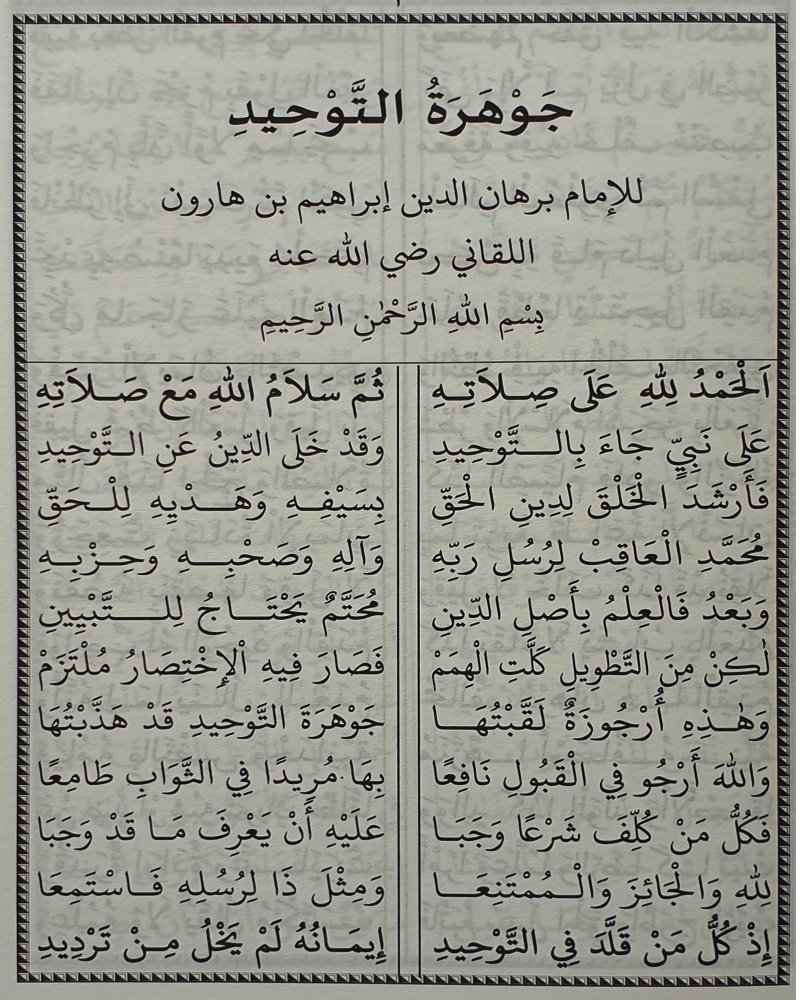 جَوْهَرَةُ التَّوْحِيدِ
للإمام برهان الدين إبراهيم بن هارون
اللقاني رضي الله عنه
بِسْمِ اللهِ الرَّحْمٰنِ الرَّحِيمِ
اَلْحَمْدُ لِلهِ عَلَى صِلَاتِهِ ثُمَّ سَلَامُ اللهِ مَعْ صَلَاتِهِ
عَلَى نَبِيٍّ جَاءَ بِالتَّوْحِيدِ وَقَدْ خَلَى الدِّينُ عَنِ التَّوْحِيدِ
فَأَرْشَدَ الْخَلْقَ لِدِينِ الْحَقِّ بِسَيْفِهِ وَهَدْيِهِ لِلْحَقِّ
مُحَمَّدِ الْعَاقِبْ لِرُسُلِ رَبِّهِ وَآلِهِ وَصَحْبِهِ وَحِزْبِهِ
وَبَعْدُ فَالْعِلْمُ بِأَصْلِ الدِّينِ مُحَتَّمٌ يَحْتَاجُ لِلتَّبْيِينِ
لٰكِنْ مِنَ التَّطْوِيلِ كَلَّتِ الْهِمَمْ فَصَارَ فِيهِ الْإِخْتِصَارُ مُلْتَزَمْ
وَهٰذِهِ أُرْجُوزَةٌ لَقَّبْتُهَا جَوْهَرَةَ التَّوْحِيدِ قَدْ هَذَّبْتُهَا
وَاللهَ أَرْجُو فِي الْقَبُولِ نَافِعًا بِهَا مُرِيدًا فِي الثَّوَابِ طَامِعًا
فَكُلُّ مَنْ كُلِّفَ شَرْعًا وَجَبَا عَلَيْهِ أَنْ يَعْرِفَ مَا قَدْ وَجَبَا
لِلهِ وَالْجَائِزَ وَالْمُمْتَنِعَا وَمِثْلَ ذَا لِرُسُلِهِ فَاسْتَمِعَا
إِذْ كُلُّ مَنْ قَلَّدَ فِي التَّوْحِيدِ إِيمَانُهُ لَمْ يَخْلُ مِنْ تَرْدِيدِ